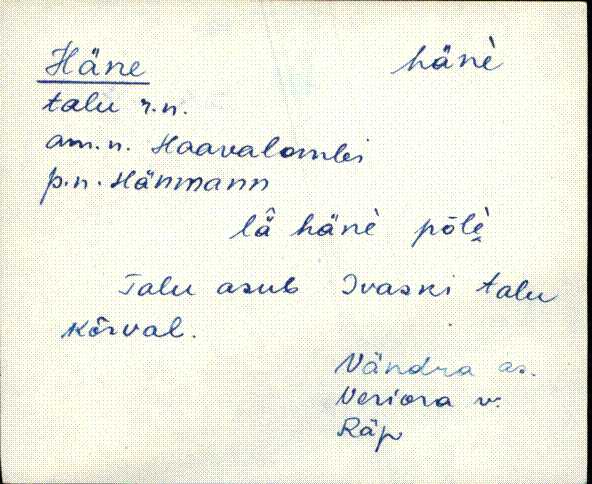 Häne hänè
talu r.n.
am.n. Haavalombi
p.n. Hänmann
lä̂ hänè pōlè̬
Talu asub Ivaski talu
kõrval.
Vändra as.
Veriora v.
Räp